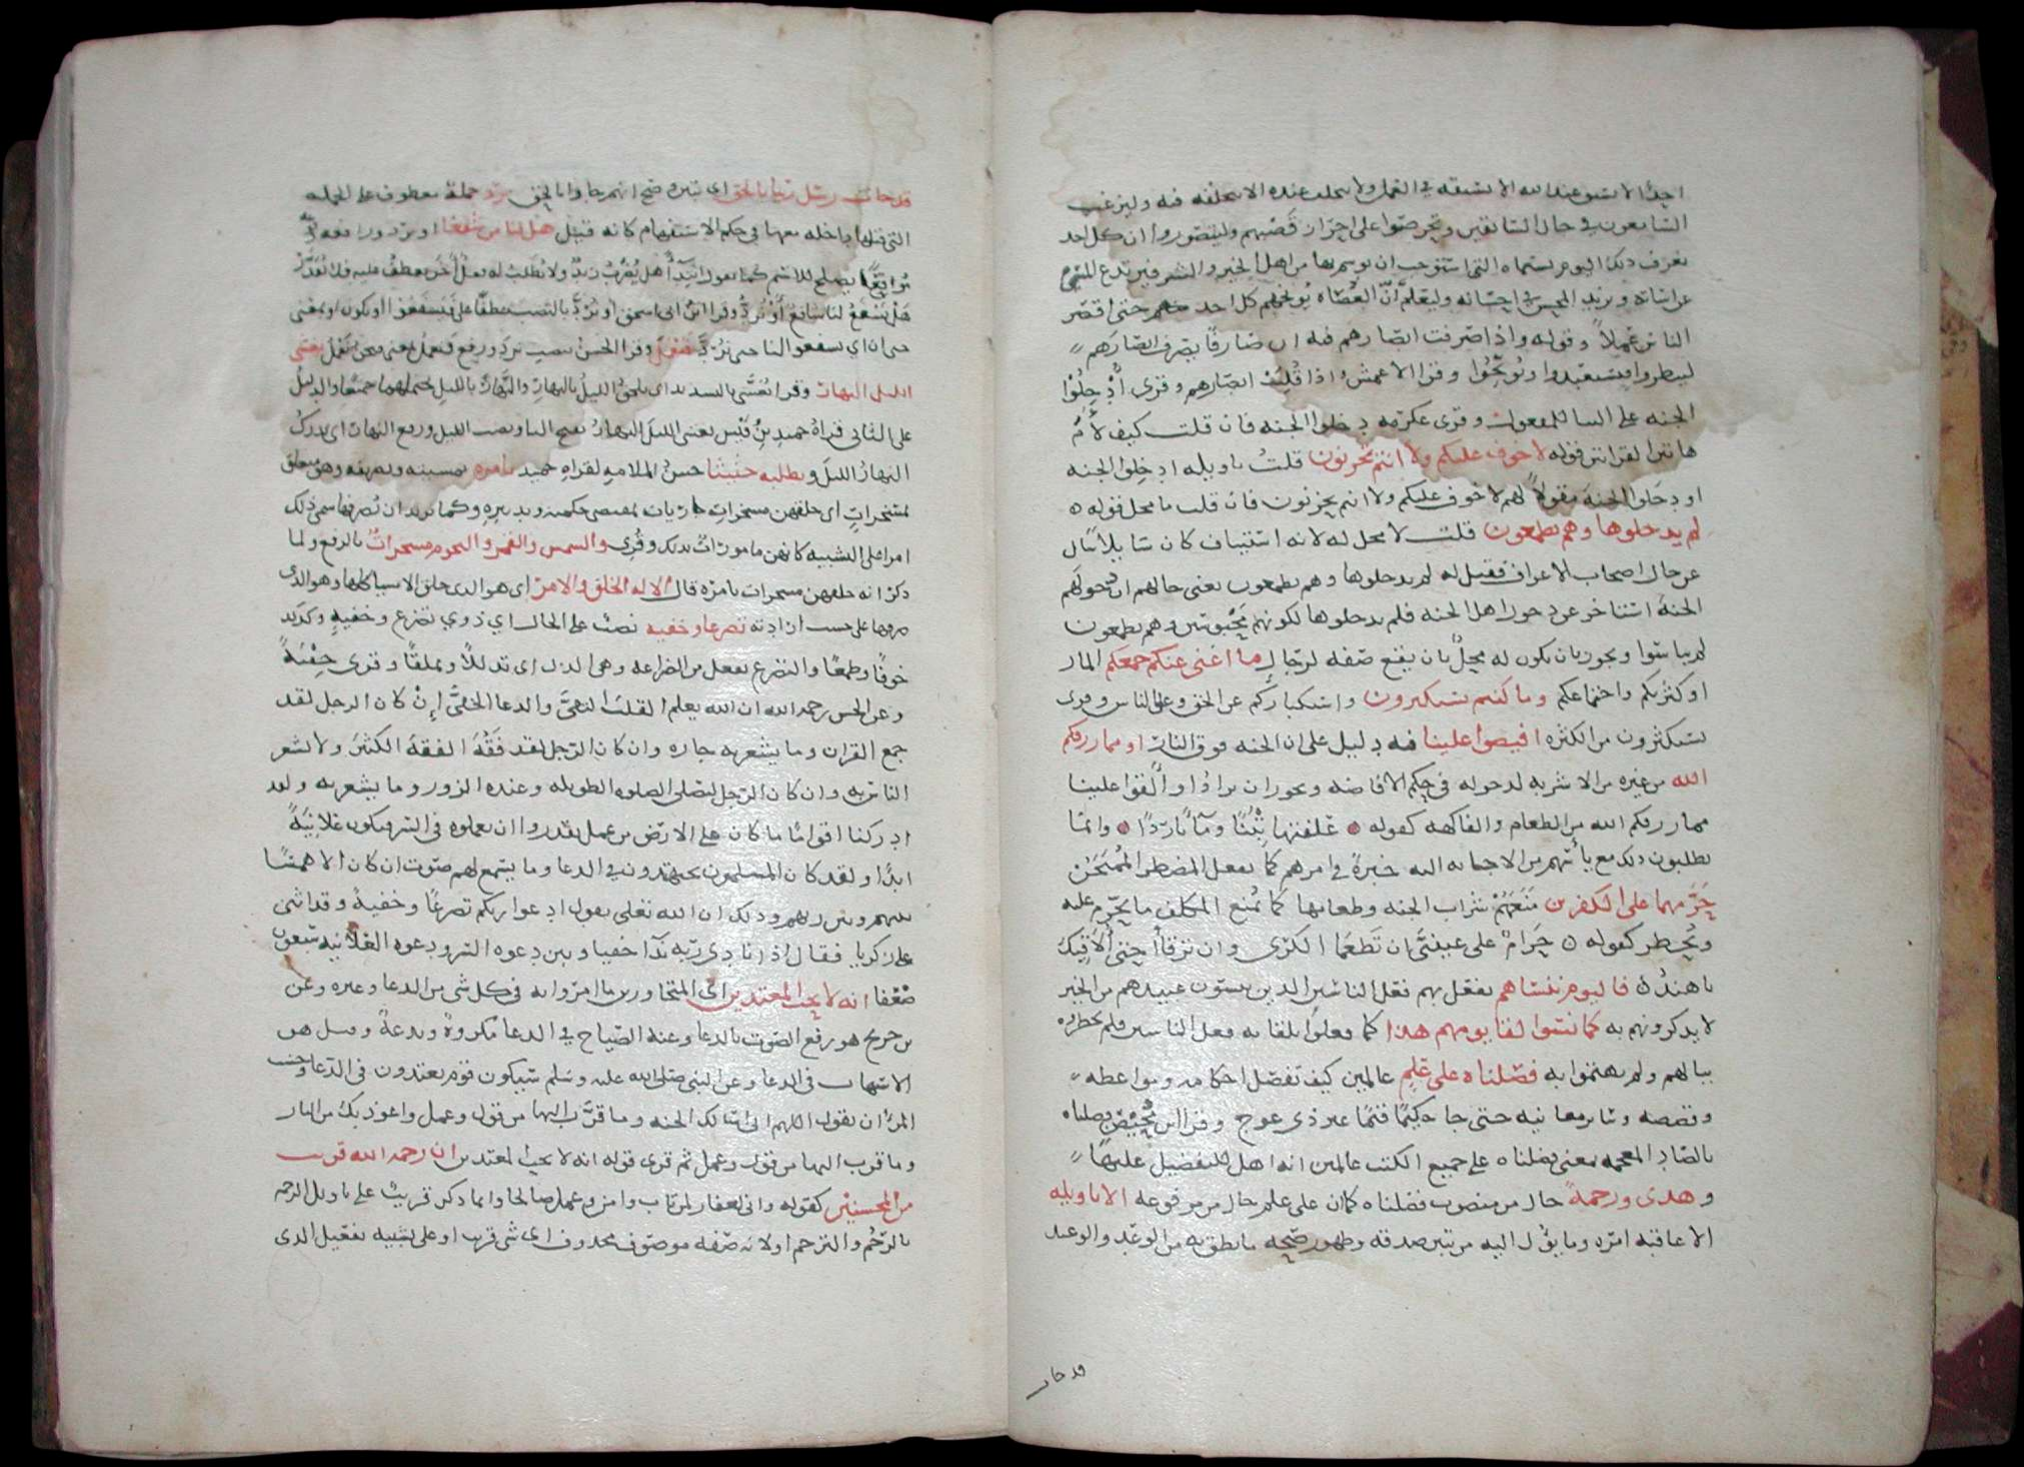 احدا لا يسبق عند الله الا بسبقه في العمل ولا يتخلف عنده الا بتخلفه فيه وليرغب
السامعون في حال السابقين ويحرصوا على احراز قصبهم وليتصوروا ان كل احد
يعرف ذلك اليوم بسيماه التي استوجب ان يوسم بها من اهل الخير والشر فيرتدع المسيء
عن اساته ويزيد المحسن في احسانه وليعلم ان العصاه يوبخهم كل احد حتى اقصر
الناس عملا وقوله واذا صرفت ابصارهم فيه ان صارفا يصرف ابصارهم
لينظروا فيستعيذوا ويوبخوا وقرا الاعمش واذا قلبت ابصارهم وقرى ادخلوا
الجنه على البنا للمفعول وقرى عكرمه دخلوا الجنه فان قلت كيف لام
هاتين القراتين قوله لا خوف عليكم ولا انتم تحزنون قلت تاويله ادخلوا الجنه
او دخلوا الجنة مقولا لهم لا خوف عليكم ولا انتم تحزنون فان قلت ما محل قوله
لم يدخلوها وهم يطمعون قلت لا محل له لانه استيناف كان سايلا سال
عن حال اصحاب الاعراف فقيل له لم يدخلوها وهم يطمعون يعني حالهم ان دخولهم
الجنة استاخر عن دخول اهل الجنه فلم يدخلوها لكونهم محبوسين وهم يطمعون
لم يياسوا ويجوز ان يكون له محل بان يقع صفه لرجال ما اغنى عنكم جمعكم المال
او كثرتكم واجتماعكم وما كنتم تستكبرون واستكباركم عن الحق وعلى الناس وقرى
تستكثرون من الكثره افيضوا علينا فيه دليل على ان الجنه فوق النار او مما رزقكم
الله من غيره من الاشربه لدخوله في حكم الافاضه ويجوز ان يراد او القوا علينا
مما رزقكم الله من الطعام والفاكهه كقوله علفتها تبنا وما باردا وانما
يطلبون ذلك مع ياسهم من الاجابه اليه حيرة في امرهم كما يفعل المضطر الممتحن
حرمهما على الكفرين منعهم شراب الجنه وطعامها كما يمنع المكلف ما يحرم عليه
ويحظر كقوله حرام على عيني ان تطعما الكرى وان ترقا حتى الاقيك
يا هند فاليوم ننساهم نفعل بهم فعل الناسين الذين ينسون عبيدهم من الخير
لا يذكرونهم به كما نسوا لقا يومهم هذا كما فعلوا بلقايه فعل الناسين فلم يخطروه
ببالهم ولم يهتموا به فصلناه على علم عالمين كيف نفصل احكامه ومواعظه
وقصصه وساير معانيه حتى جا حكيما قيما غير ذي عوج وقرا ابن محيصن فضلناه
بالضاد المعجمه بمعنى فضلناه على جميع الكتب عالمين انه اهل للتفضيل عليها
وهدى ورحمة حال من منصوب فصلناه كما ان على علم حال من مرفوعه الا تاويله
الا عاقبة امره وما يؤل اليه من تبين صدقه وظهور صحه ما نطق به من الوعد والوعيد
قد جات
قد جات رسل ربنا بالحق اي تبين وصح انهم جاوا بالحق نرد جملة معطوفه على الجمله
التي قبلها داخله معها في حكم الاستفهام كانه قيل هل لنا من شفعا او نرد ورافعه
موقعا يصلح للاسم كما تقول ابتدا هل يضرب زيد ولا يطلب له فعل اخر يعطف عليه فلا يقدر
هل يشفع لنا شافع او نرد وقرا ابن ابي اسحق او نرد بالنصب عطفا على فيشفعوا او تكون او بمعنى
حتى ان اي يشفعوا لنا حتى نرد فنعمل وقرا الحسن بنصب نرد ورفع فنعمل بمعنى فنحن نعمل يغشى
الليل النهار وقرا يغشى بالتشديد اي يلحق الليل بالنهار والنهار بالليل يحتملهما جميعا والدليل
على الثاني قراة حميد بن قيس يغشى الليل النهار بفتح اليا ونصب الليل ورفع النهار اي يدرك
النهار الليل ويطلبه حثيثا حسن الملامه لقراه حميد بامره بمشيته وتصريفه وهو متعلق
بمسخرات اي خلقهن مسخرات جاريات بمقتضى حكمته وتدبيره وكما يريد ان يصرفها سمى ذلك
امرا على التشبيه كانهن مامورات بذلك وقرى والشمس والقمر والنجوم مسخرات بالرفع ولما
ذكر انه خلقهن مسخرات بامره قال الا له الخلق والامر اي هو الذي خلق الاشيا كلها وهو الذي
صرفها على حسب ارادته تضرعا وخفيه نصب على الحال اي ذوي تضرع وخفيه وكذلك
خوفا وطمعا والتضرع تفعل من الضراعه وهي الذل اي تذللا وتملقا وقرى خفية
وعن الحسن رحمه الله ان الله يعلم القلب التقي والدعا الخفي إن كان الرجل لقد
جمع القران وما يشعر به جاره وان كان الرجل لقد فقه الفقه الكثير ولا يشعر
الناس به وان كان الرجل ليصلي الصلوه الطويله وعنده الزور وما يشعر به ولقد
ادركنا اقواما ما كان على الارض من عمل يقدروا ان يعملوه في السر فيكون علانية
ابدا ولقد كان المسلمون يجتهدون في الدعا وما يسمع لهم صوت ان كان الا همسا
بينهم وبين ربهم وذلك ان الله تعالى يقول ادعوا ربكم تضرعا وخفية وقد اثنى
على زكريا فقال اذ نادى ربه ندآ خفيا وبين دعوه السر ودعوه العلانيه سبعون
ضعفا انه لا يحب المعتدين اي المتجاوزين ما امروا به في كل شى من الدعا وغيره وعن
بن جريج هو رفع الصوت بالدعا وعنه الصياح في الدعا مكروة وبدعة وقيل هو
الاسهاب في الدعا وعن النبي صلى الله عليه وسلم سيكون قوم يعتدون في الدعا وحسب
المرء ان يقول اللهم اني اسالك الجنه وما قرب اليها من قول وعمل واعوذ بك من النار
وما قرب اليها من قول وعمل ثم قرى قوله انه لا يحب المعتدين ان رحمه الله قريب
من المحسنين كقوله واني لغفار لمن تاب وامن وعمل صالحا وانما ذكر قريب على تاويل الرحمه
بالرحم والترحم او لانه صفه موصوف محذوف اي شى قريب او على تشبيه بفعيل الذي